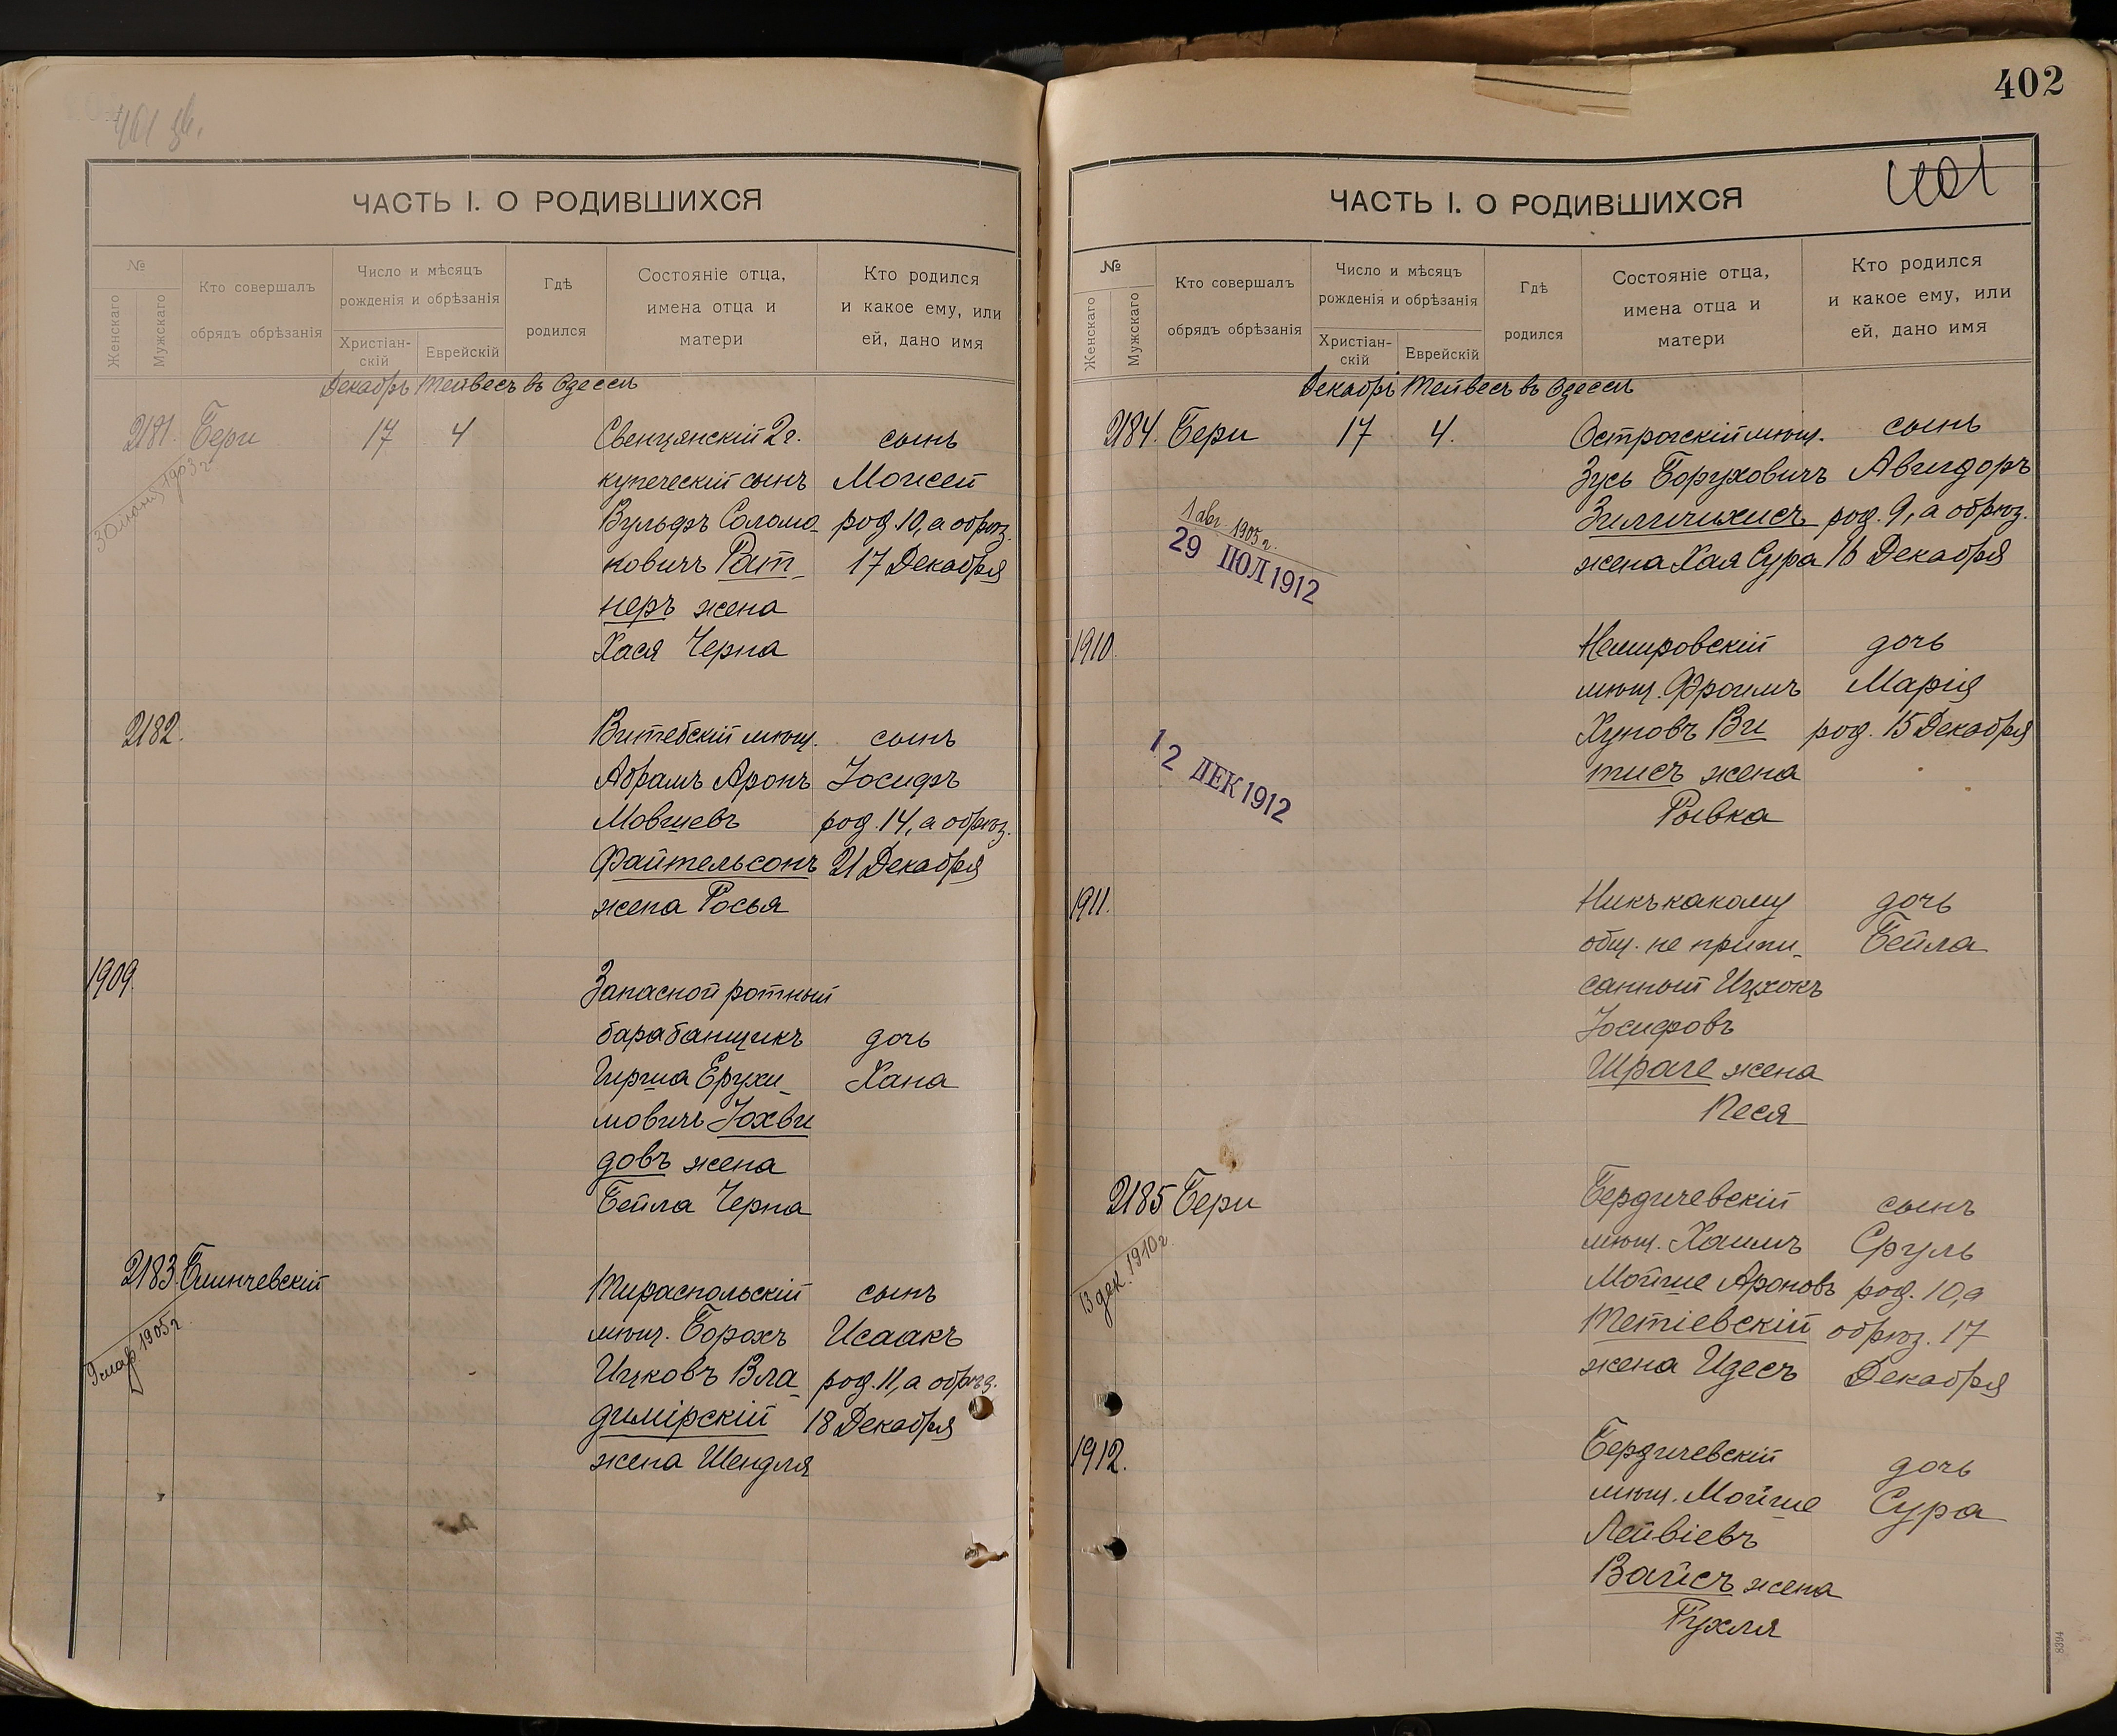 ЧАСТЬ I. О РОДИВШИХСЯ
№
Женскаго
Мужскаго
Кто совершалъ
обрядъ обрѣзанія
Число и мѣсяцъ
рожденія и обрѣзанія
Христіан-
скій
Еврейскій
Гдѣ
родился
Состояніе отца,
имена отца и
матери
Кто родился
и какое ему, или
ей, дано имя
Декабрь Тейвесъ въ Одессѣ
2181. Бери 17 4 Свенцянскій 2 г. сынъ
купеческій сынъ Моисей
Вульфъ Соломо- род. 10, а обрѣз.
новичъ Рат- 17 Декабря
неръ жена
Хася Черна
1903 г.
2182. Витебскій мѣщ. сынъ
Абрамъ Аронъ Іосифъ
Мовшевъ род. 14, а обрѣз.
Файтельсонъ 21 Декабря
жена Росья
1909. Запасной ротный
барабанщикъ дочь
Гирша Ерухи- Хана
мовичъ Іохви
довъ жена
Бейла Черна
2183. Блинчевскій Тираспольскій сынъ
мѣщ. Борохъ Исаакъ
Ицковъ Вла- род. 11, а обрѣз.
димірскій 18 Декабря
жена Шендля
9 мар. 1905 г.
402
401
ЧАСТЬ I. О РОДИВШИХСЯ
№
Женскаго
Мужскаго
Кто совершалъ
обрядъ обрѣзанія
Число и мѣсяцъ
рожденія и обрѣзанія
Христіан-
скій
Еврейскій
Гдѣ
родился
Состояніе отца,
имена отца и
матери
Кто родился
и какое ему, или
ей, дано имя
Декабрь Тейвесъ въ Одессѣ
2184. Бери 17 4. Острогскій мѣщ. сынъ
Зусь Боруховичъ Авигдоръ
Зиличихисъ род. 9, а обрѣз.
жена Хая Сура 16 Декабря
1 авг. 1905 г.
29 ІЮЛ 1912
1910. Немировскій дочь
мѣщ. Фроимъ Марія
Хуновъ Ви род. 15 Декабря
тисъ жена
Рывка
12 ДЕК 1912
1911. Никъ какому дочь
общ. не припи- Бейла
санный Ицхокъ
Іосифовъ
Шраге жена
Песя
2185 Бери Бердичевскій сынъ
мѣщ. Хаимъ Сруль
Мойше Ароновъ род. 10, а
Тетіевскій обрѣз. 17
жена Идесъ Декабря
13 дек. 1910 г.
1912. Бердичевскій дочь
мѣщ. Мойше Сура
Лейвіевъ
Вайсъ жена
Рухля
8394